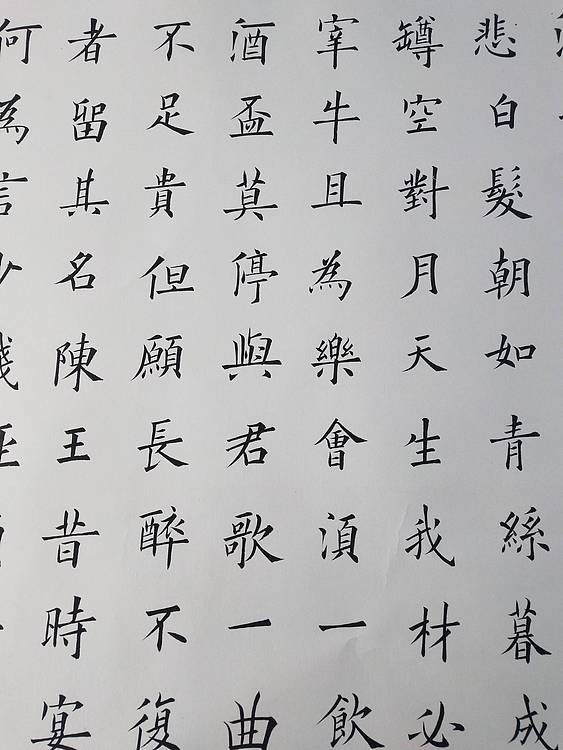 悲白髮朝如青絲暮成
罇空對月天生我材必
宰牛且為樂會湏一飲
酒盃莫停與君歌一曲
不足貴但願長醉不復
者留其名陳王昔時宴
何為言少錢